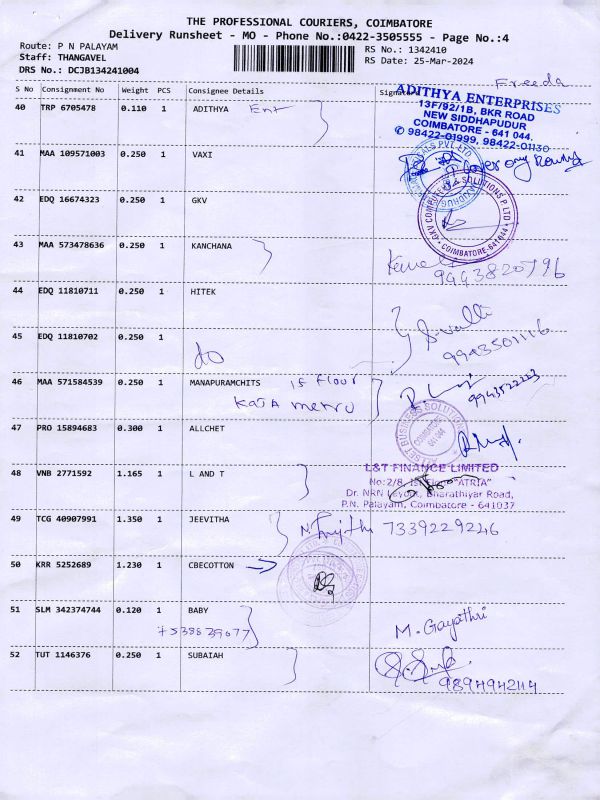 THE PROFESSIONAL COURIERS, COIMBATORE
Delivery Runsheet - MO - Phone No.:0422-3505555 - Page No.:4
Route: P N PALAYAM RS No.: 1342410
Staff: THANGAVEL RS Date: 25-Mar-2024
DRS No.: DCJB134241004
Freeda
S No Consignment No Weight PCS Consignee Details
40 TRP 6705478 0.110 1 ADITHYA Ent
ADITHYA ENTERPRISES
13F/92/1B, BKR ROAD
NEW SIDDHAPUDUR
COIMBATORE - 641 044.
✆ 98422-01999, 98422-01130
41 MAA 109571003 0.250 1 VAXI
42 EDQ 16674323 0.250 1 GKV
43 MAA 573478636 0.250 1 KANCHANA
9443820796
44 EDQ 11810711 0.250 1 HITEK
45 EDQ 11810702 0.250 1
do
S.valli
9943501116
46 MAA 571584539 0.250 1 MANAPURAMCHITS
KATA metru
9943522223
47 PRO 15894683 0.300 1 ALLCHET
48 VNB 2771592 1.165 1 L AND T
L&T FINANCE LIMITED
No:2/8, "ATRIA"
Dr. NRN Layout, Bharathiyar Road,
P.N. Palayam, Coimbatore - 641037
49 TCG 40907991 1.350 1 JEEVITHA
7339229246
50 KRR 5252689 1.230 1 CBECOTTON
51 SLM 342374744 0.120 1 BABY
7538839677
M. Gayathri
52 TUT 1146376 0.250 1 SUBAIAH
9894942114